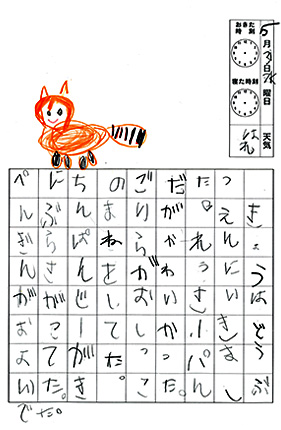 5月 日 水曜日
天気 はれ
おきた時刻
寝た時刻
きょうはどうぶ
つえんにいきまし
た。れっさーパん
だがかわいかった。
ごりらがおっこ
のまねをしてた。
ちんぱんじーがき
にぶらさがってた。
ぺんぎんがおよい
でた。